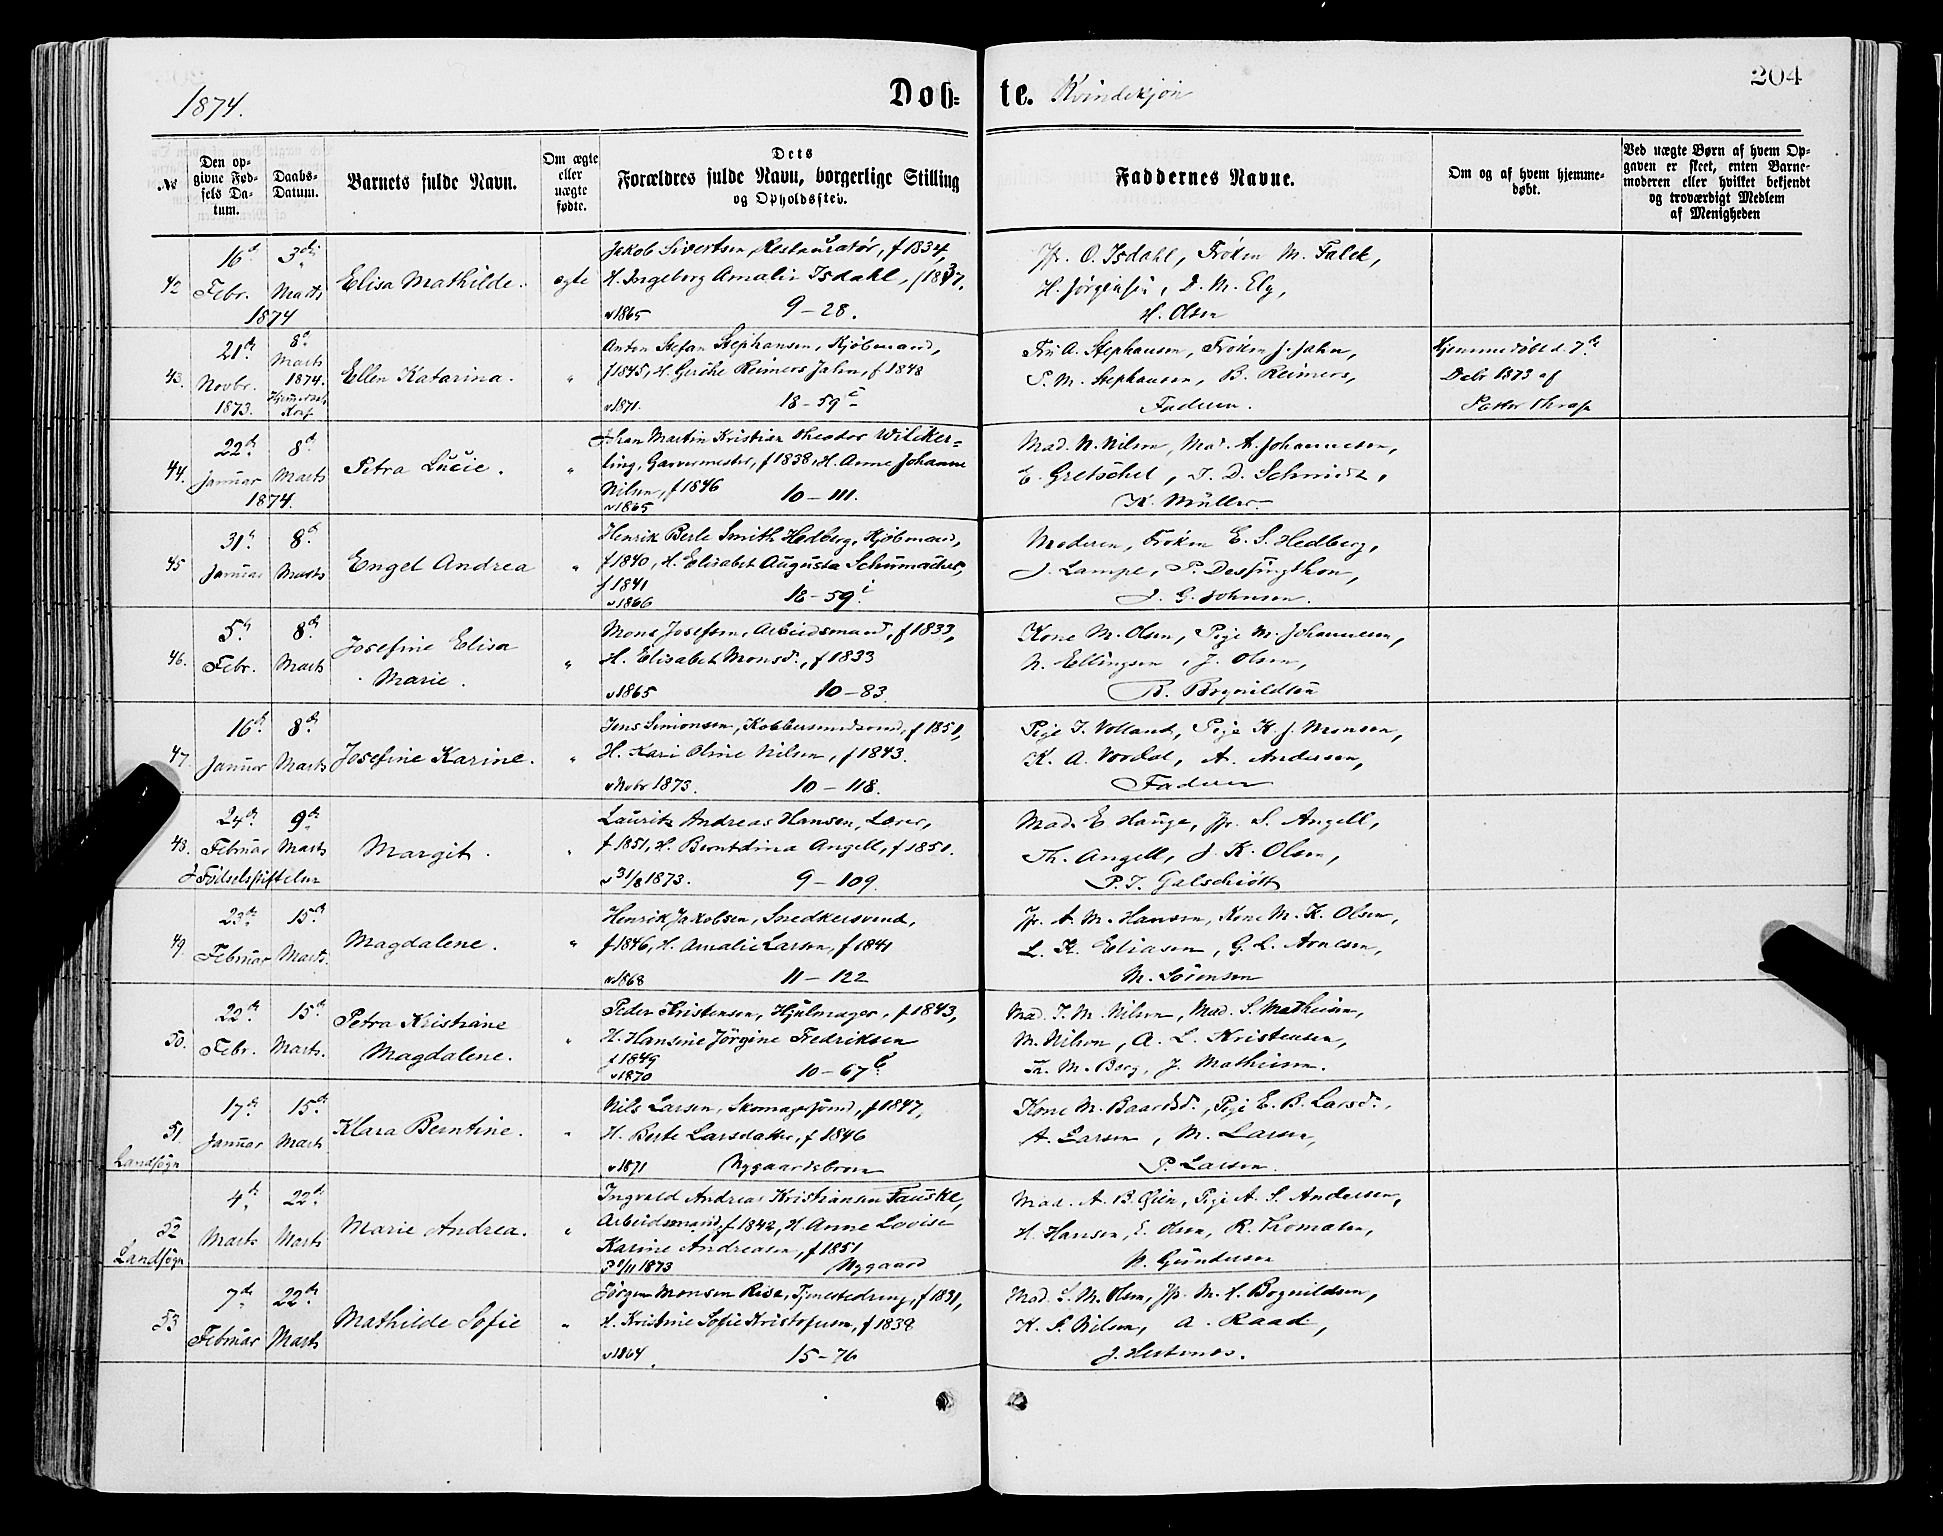 1874.
Døb-
te. Kvindekjøn
204
No
Den op-
givne Fød-
sels Da-
tum.
Daabs-
Datum.
Barnets fulde Navn.
Om ægte
eller
uægte
fødte.
Dets
Forældres fulde Navn, borgerlige Stilling
og Opholdssted.
Faddernes Navne.
Om og af hvem hjemme-
døbt.
Ved uægte Børn af hvem Op-
gaven er skeet, enten Barne-
moderen eller hvilket bekjendt
og troværdigt Medlem
af Menigheden
42
16d
Febr.
3die
Marts
1874
Elisa Mathilde.
egte
Jakob Sivertsen, Restauratør, f 1834,
H. Ingeborg Amalie Isdahl, f 1837.
v 1865 9-28.
Jfr. O. Isdahl, Frøken M. Falck,
H. Jørgensen, D. M. Ely,
H. Olsen
43.
21d
Novbr.
1873.
8d
Marts
1874.
Ellen Katarina.
"
Anton Stefan Stephansen, Kjøbmand,
f 1845, H. Gerche Reimers Jahn, f 1848
v 1871. 18-59
Fru A. Stephansen, Frøken J. Jahn,
S. M. Stephansen, B. Reimers,
Faderen.
Hjemmedøbt d. 7de
Debr 1873 af
Pastor Thrap
44.
22d
Januar
1874.
8d
Marts
Petra Lucie.
"
Johan Martin Kristian Theodor Wilcker-
ling, Garvermester, f 1838, H. Anne Johanne
Nilsen, f 1846
v 1865 10-111.
Mad. N. Nilsen, Mad. A. Johannesen,
E. Gretschel, T. D. Schmidt,
K. Müller.
45
31d
Januar
8d
Marts
Engel Andrea
"
Henrik Berle Smith Hedberg, Kjøbmand,
f 1840, H. Elisabet Augusta Schumacher,
f 1841
v 1866 18-59
Moderen, Frøken E. S. Hedberg,
J. Lampe, P. Dessingthon,
J. G. Johnsen.
46.
5d
Febr.
8d
Marts
Josefine Elisa
Marie.
"
Mons Josefsen, Arbeidsmand, f 1833,
H. Elisabet Monsd., f 1833
v 1865 10-83.
Kone M. Olsen, Pige M. Johannesen,
N. Ellingsen, J. Olsen,
B. Bognildsen
47.
16d
Januar
8d
Marts
Josefine Karine.
"
Jens Simonsen, Kobbersmedsvend, f 1851,
H. Kari Oline Nilsen, f 1843.
v Nobr 1873. 10-118.
Pige I. Volland, Pige K. J. Monsen,
K. A. Vordal, A. Andersen,
Faderen
48.
24d
Februar
I Fødselsstiftelsen
9d
Marts
Margit.
"
Lauritz Andreas Hansen, Lærer,
f 1851, H. Berntdina Angell, f 1851.
v 31/8 1873. 9-109.
Mad. E Hauge, Jfr. S. Angell,
Th. Angell, J. K. Olsen,
P. I. Galschiøtt
49.
23d
Februar
15d
Marts.
Magdalene.
"
Henrik Jakobsen, Snedkersvend,
f 1846, H. Amalie Larsen, f 1841
v 1868 11-122
Jfr. A. M. Hansen, Kone M. K. Olsen,
L. K. Eliasen, G. L. Arnesen,
M. Sørensen
50.
22d
Febr.
15d
Marts.
Petra Kristiane
Magdalene.
"
Peder Kristensen, Hjulmager, f 1843,
H. Hansine Jørgine Fredriksen
f 1849
v 1870 10-67b
Mad. I. M. Nilsen, Mad. S. Mathisen,
M. Nilson, A. L. Kristensen,
Th. M. Berg, J. Mathisen.
51
Landsogn
17d
Januar
15d
Marts
Klara Berntine.
"
Nils Larsen, Skomagersvend, f 1847,
H. Berte Larsdatter, f 1846
v 1871 Nygaardsbroen
Kone M. Baardsd., Pige E. B. Larsd.,
A. Larsen, M. Larsen,
P. Larsen.
52
Landsogn
4d
Marts
22d
Marts
Marie Andrea.
"
Ingvald Andreas Kristiansen Fauske,
Arbeidsmand, f 1842, H. Anne Lovise
Karine Andreasen, f 1851
1873 Nygaard
Mad. A. B. Gien, Pige A. S. Andersen,
H. Hansen, E. Olsen, R. Thomasen,
N. Gundersen
53
7de
Februar
22d
Marts
Mathilde Sofie
"
Jørgen Monsen Rise, Tjenestedreng, f 1831,
H. Kristine Sofie Kristofersen, f 1839
v 1864 15-76
Mad. S. M. Olsen, Jfr. M. N. Bognildsen,
K. S. Nilsen, A. Raad,
J. Hestenes.